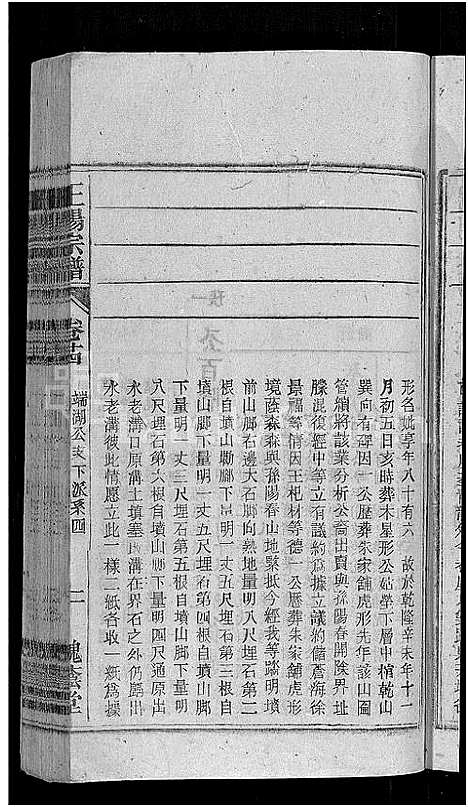 形名妣享年八十有六　故於乾隆辛未年十一
月初五日亥時葬木星形公妣塋下層中棺乾山
巽向有碑因一公歷葬朱家舖虎形先年該山園
管領將該業分析公裔出賣與孫陽春開陝界址
朦混復經中等立有議約為據立議約儲詹海徐
景福等情因王杞材等德一公歷葬朱家舖虎形
境蔭森森與孫陽春山地緊抵今經我等踏明墳
前山脚石邊大石腳向熟地量明八尺埋石第二
根自墳山脚下量明一丈五尺埋石第三根自
墳山脚下量明一丈五尺埋石第四根自墳山脚
下量明一丈三尺埋石第五根自墳山脚下量明
八尺埋石第六根自墳山脚下量明四尺通原出
水老溝口原溝土填塞溝在界石之外仍歸出
水老溝彼此情應立此一樣二紙各收一紙為據
王陽宗譜
卷廿四
端湖公支下派系四
二
槐蔭堂